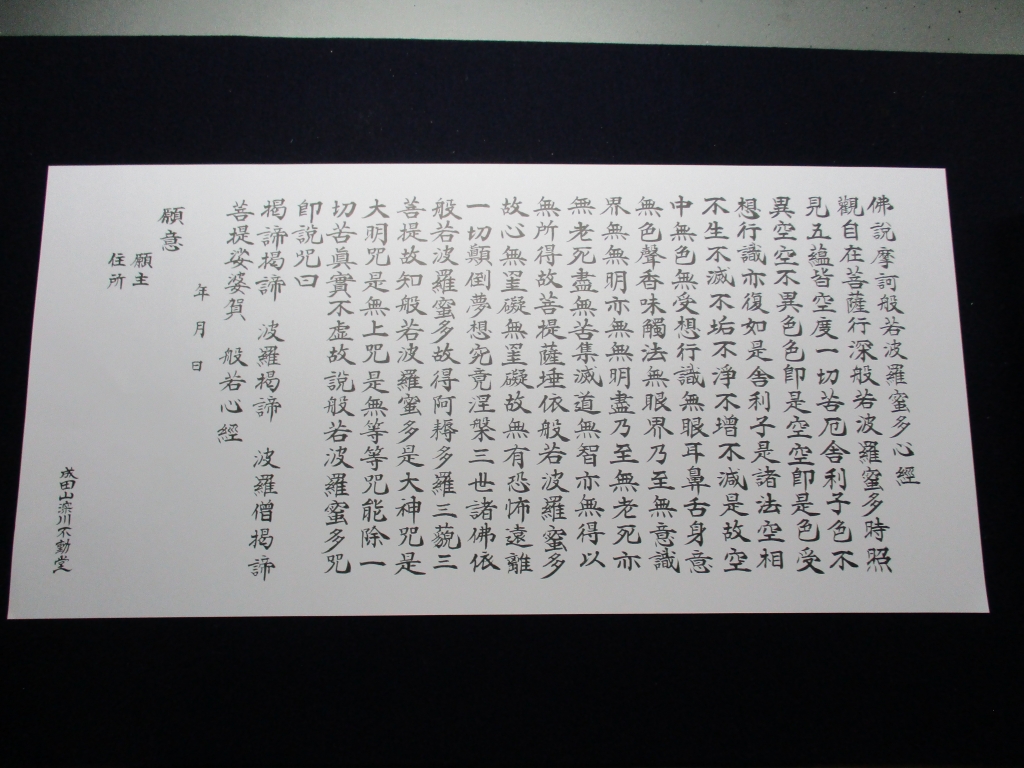 佛説摩訶般若波羅蜜多心經
觀自在菩薩行深般若波羅蜜多時照
見五蘊皆空度一切苦厄舍利子色不
異空空不異色色即是空空即是色受
想行識亦復如是舍利子是諸法空相
不生不滅不垢不淨不增不減是故空
中無色無受想行識無眼耳鼻舌身意
無色聲香味觸法無眼界乃至無意識
界無無明亦無無明盡乃至無老死亦
無老死盡無苦集滅道無智亦無得以
無所得故菩提薩埵依般若波羅蜜多
故心無罣礙無罣礙故無有恐怖遠離
一切顛倒夢想究竟涅槃三世諸佛依
般若波羅蜜多故得阿耨多羅三藐三
菩提故知般若波羅蜜多是大神咒是
大明咒是無上咒是無等等咒能除一
切苦眞實不虚故說般若波羅蜜多咒
即說咒曰
揭諦揭諦　波羅揭諦　波羅僧揭諦
菩提娑婆賀　般若心經
年　月　日
願意
願主
住所
成田山滦川不動堂